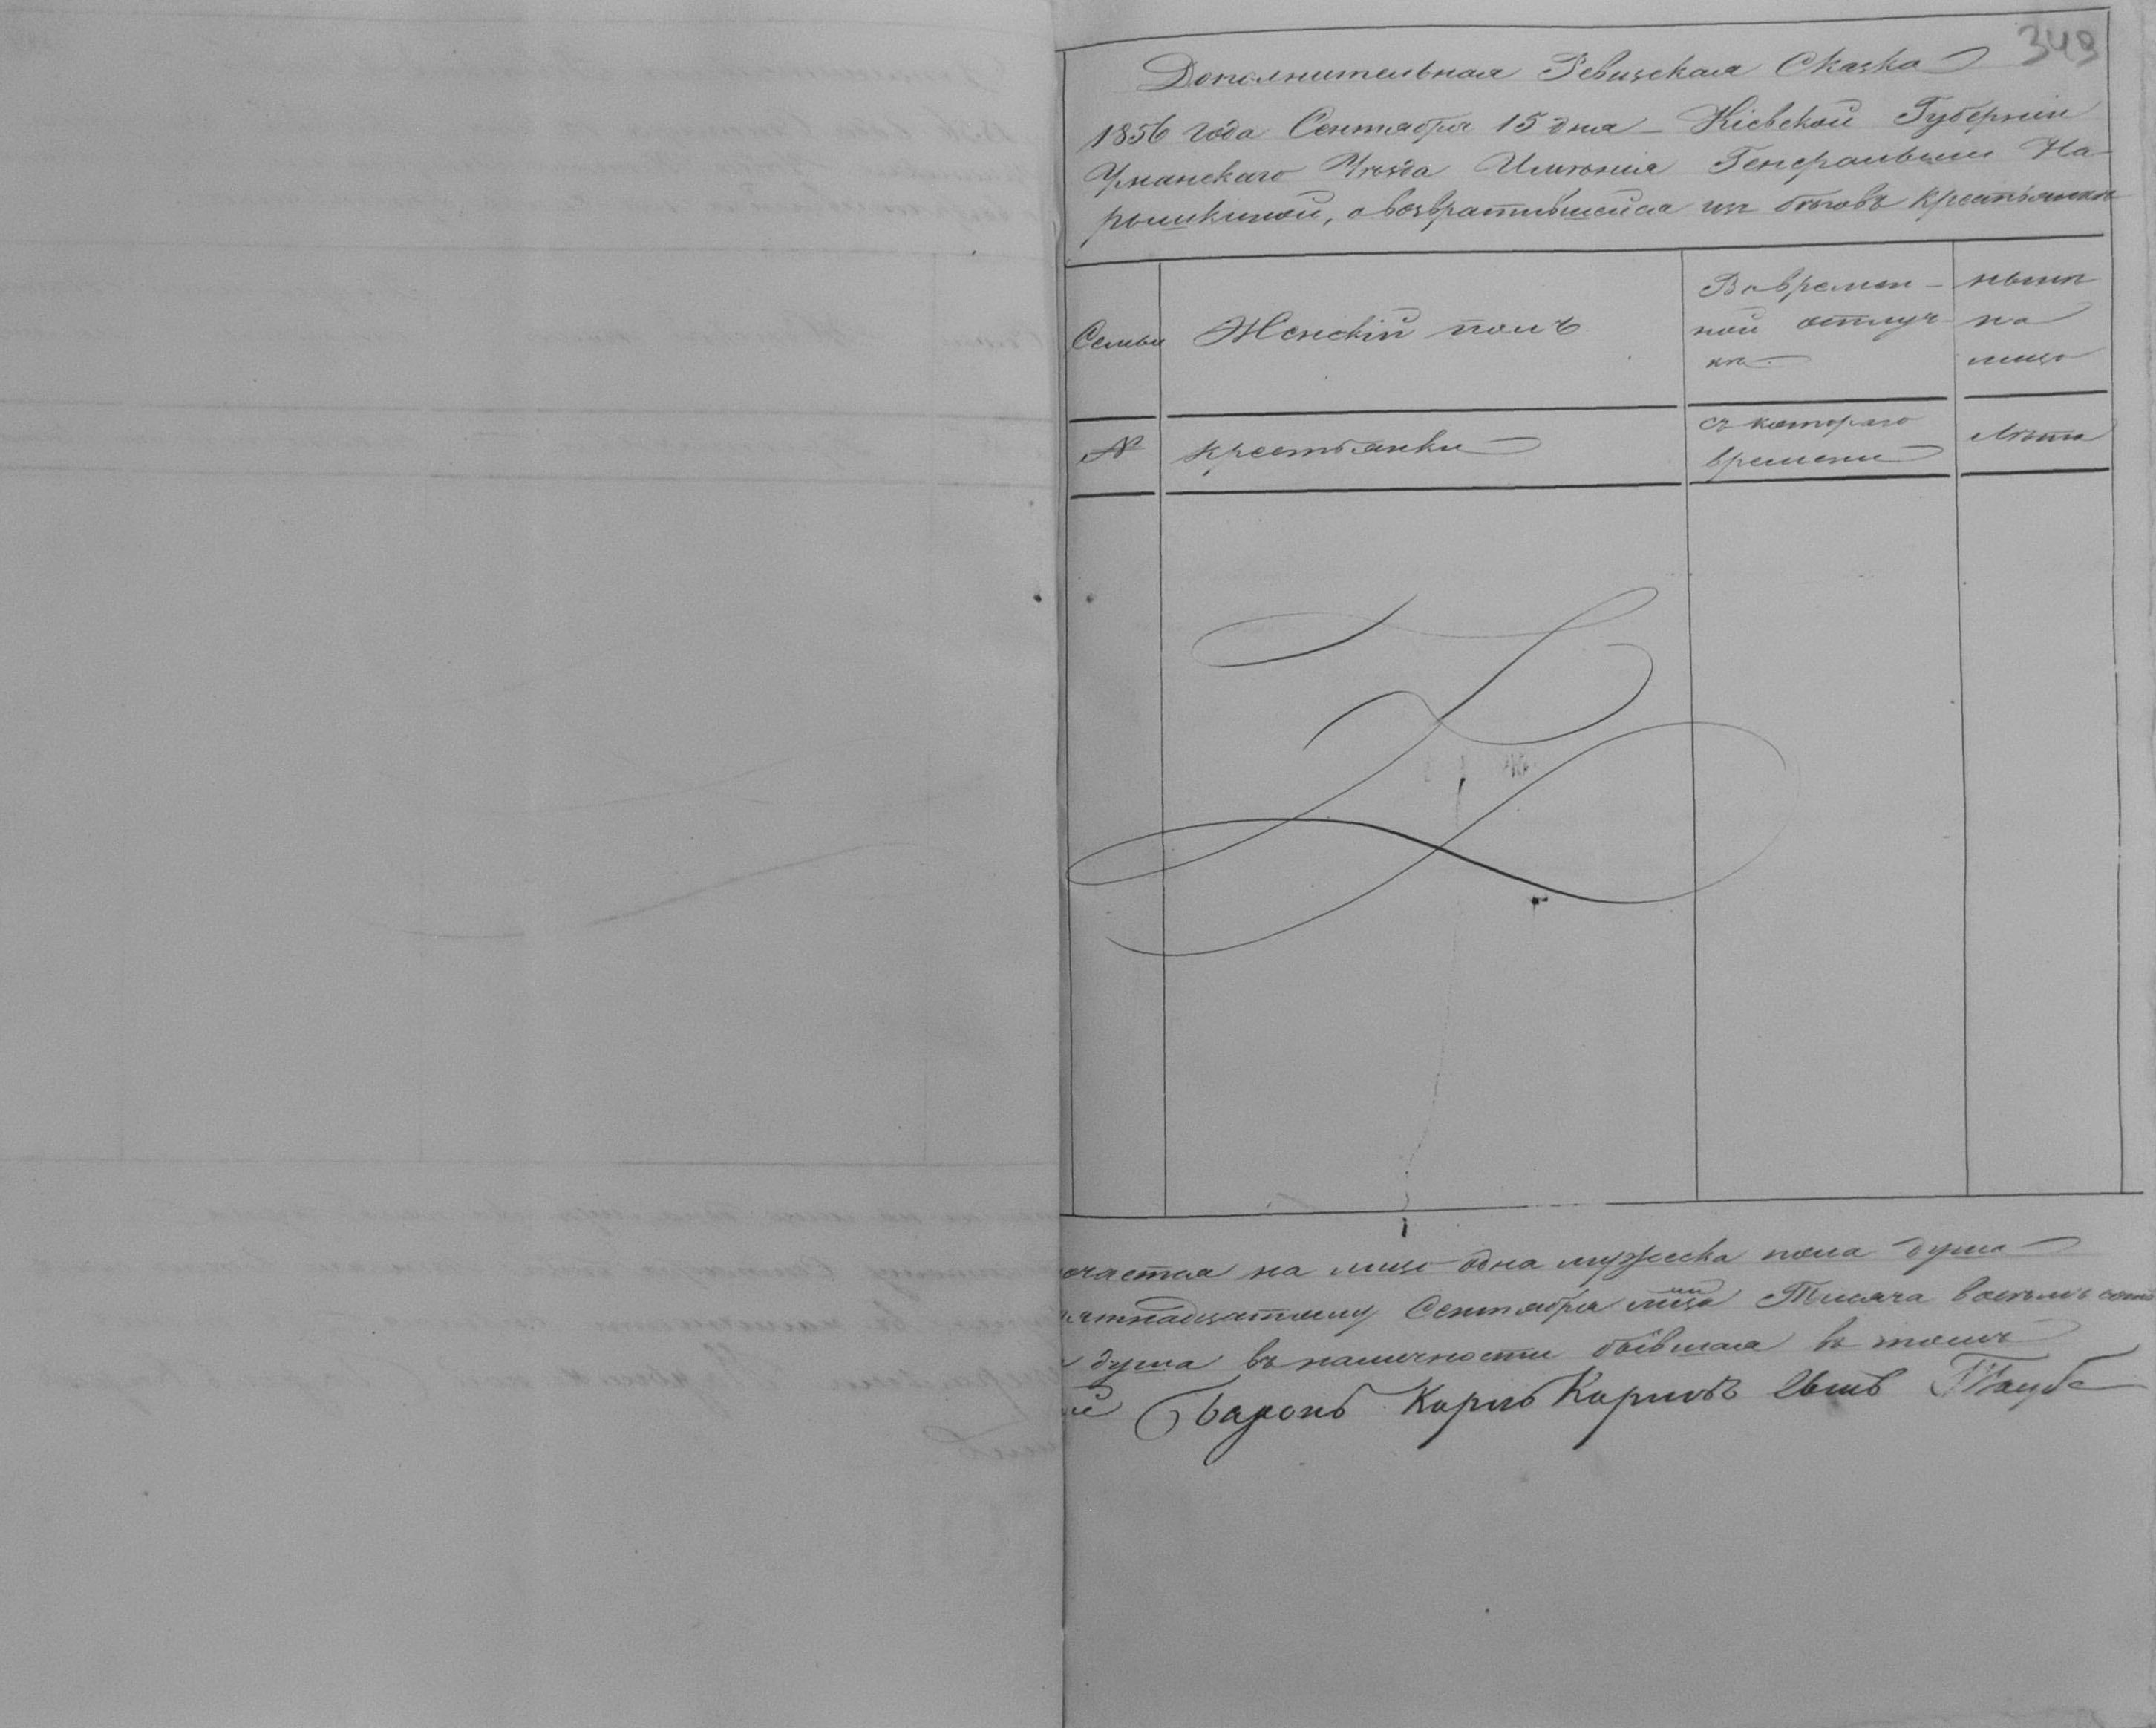 349
Дополнительная Ревизская Сказка
1856 года Сентября 15 дня – Кіевской Губерніи
Уманскаго Уѣзда Имѣнія Генеральши На-
рышкиной, о возвратившейся изъ бѣговъ крестьянкѣ
Семьи
Женскій полъ
Во времен-
ной отлуч-
кѣ
нынѣ
на
лицо
№
крестьянки
съ котораго
времени
Лѣта
очается на лицо одна мужеска пола душа
ятнадцатому Сентября мца Тысяча восемь сотъ
душа въ наличности бывшая въ томъ
Баронъ Карлъ Карловъ сынъ Таубе